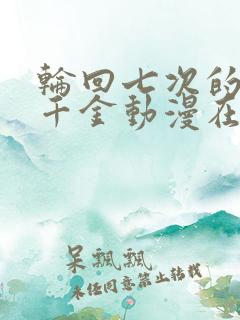 輪回七次的
千金動漫在
呆飄飄
未經同意禁止轉載